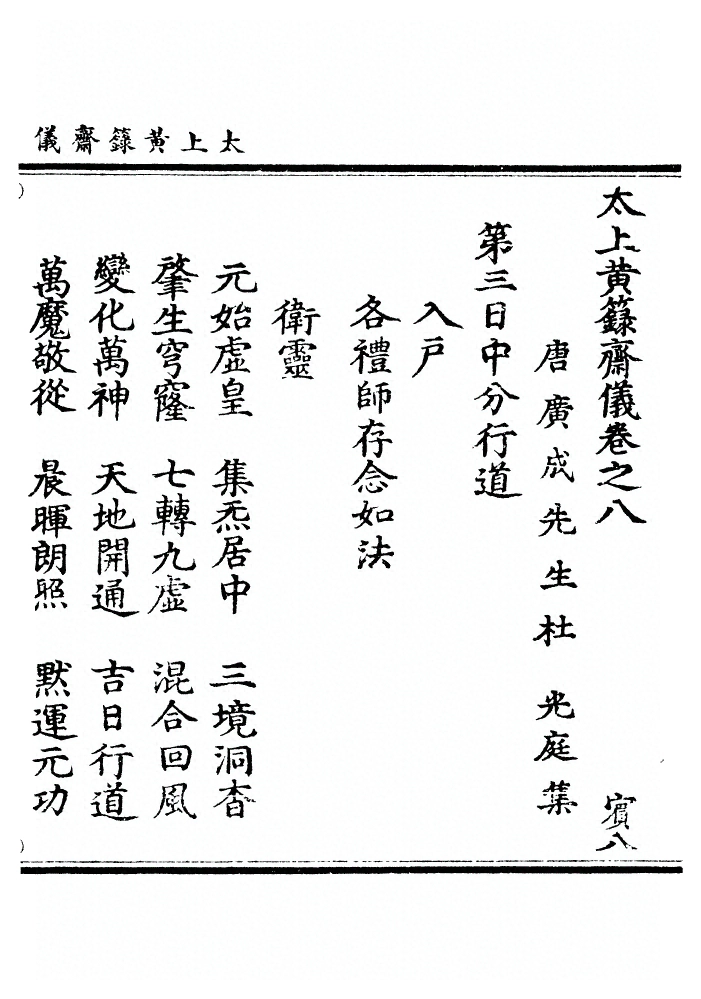 太上黃籙齋儀
太上黃籙齋儀卷之八 賓八
唐廣成先生杜光庭集
第三日中分行道
入戶
各禮師存念如法
衛靈
元始虛皇 集炁居中 三境洞杳
肇生穹窿 七轉九虛 混合回風
變化萬神 天地開通 吉日行道
萬魔敬從 晨暉朗照 默運元功